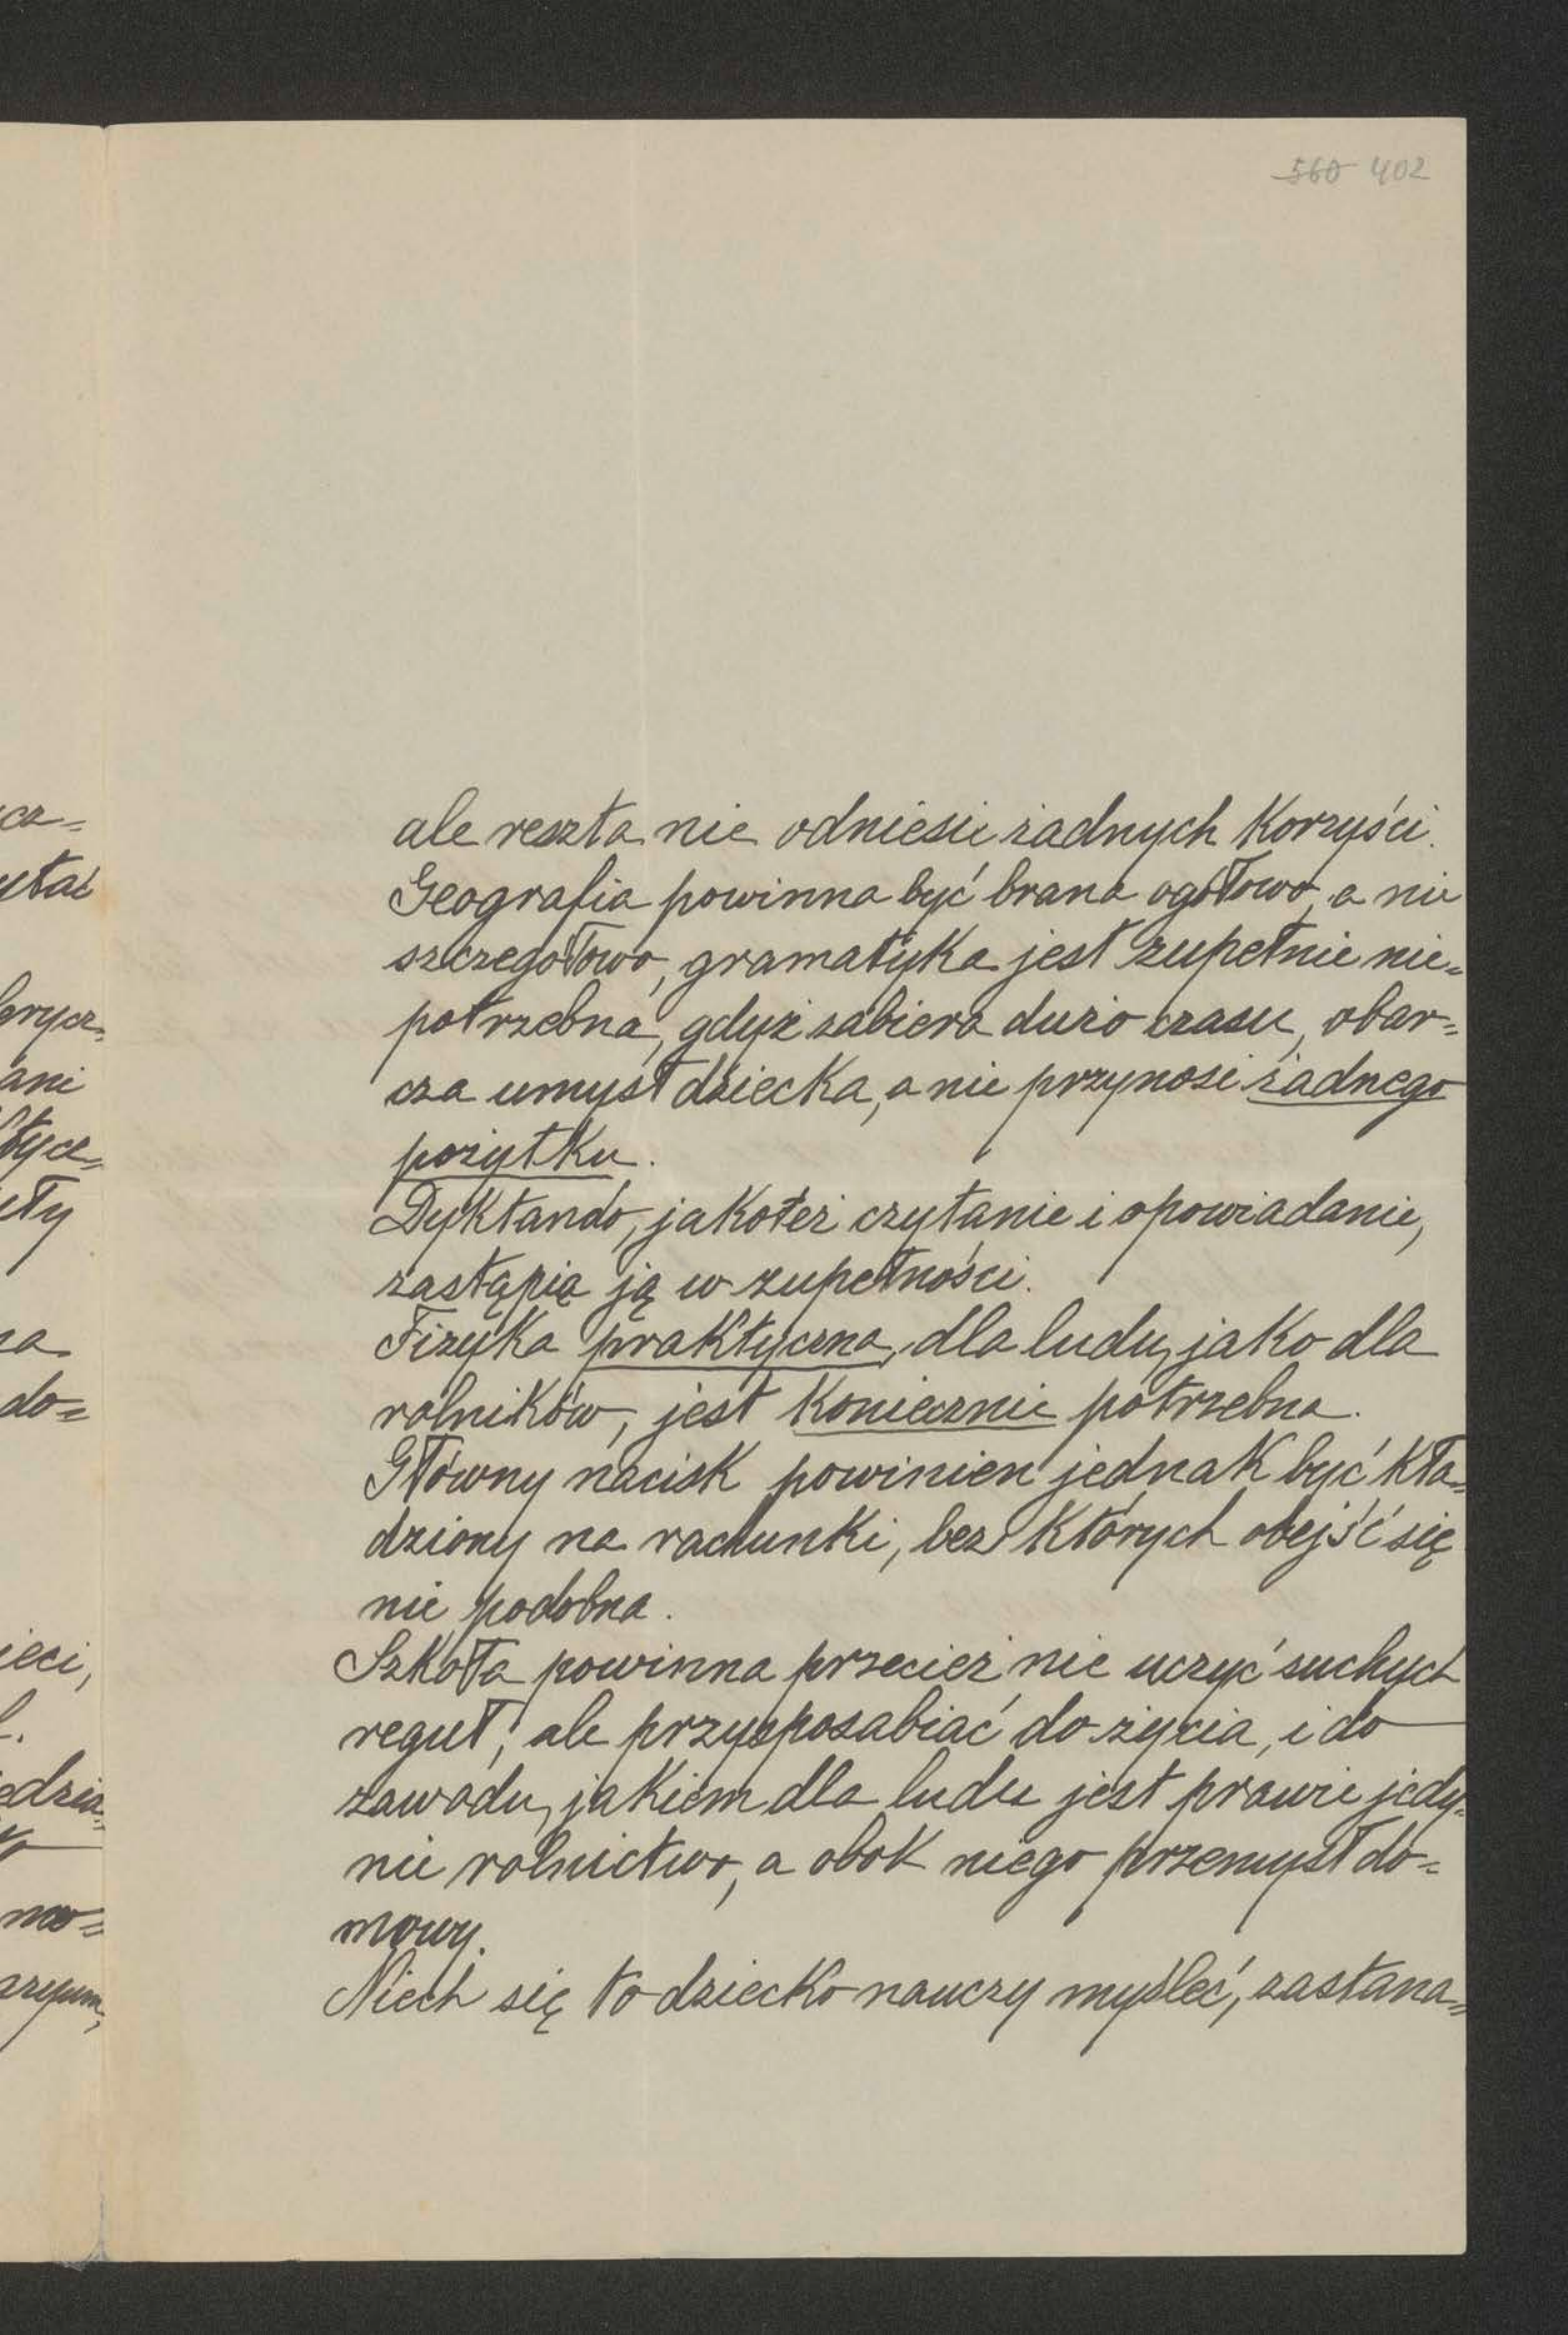 560 402
ca=
ytać
ale reszta nie odniesie żadnych korzyści.
Geografia powinna być brana ogółowo, a nie
szczegółowo, gramatyka jest zupełnie nie=
potrzebna, gdyż zabiera dużo czasu, obar=
cza umysł dziecka, a nie przynosi żadnego
pożytku.
Dyktando, jakoteż czytanie i opowiadanie,
zastąpią ją w zupełności.
Fizyka praktyczna, dla ludu, jako dla
rolników, jest koniecznie potrzebna.
Główny nacisk powinien jednak być kła=
dziony na rachunki, bez których obejść się
nie podobna.
Szkoła powinna przecież nie uczyć suchych
reguł, ale przysposabiać do życia, i do
zawodu, jakiem dla ludu jest prawie jedy=
nie rolnictwo, a obok niego przemysł do=
mowy.
Niech się to dziecko nauczy myśleć, zastana=
ani
do=
ieci,